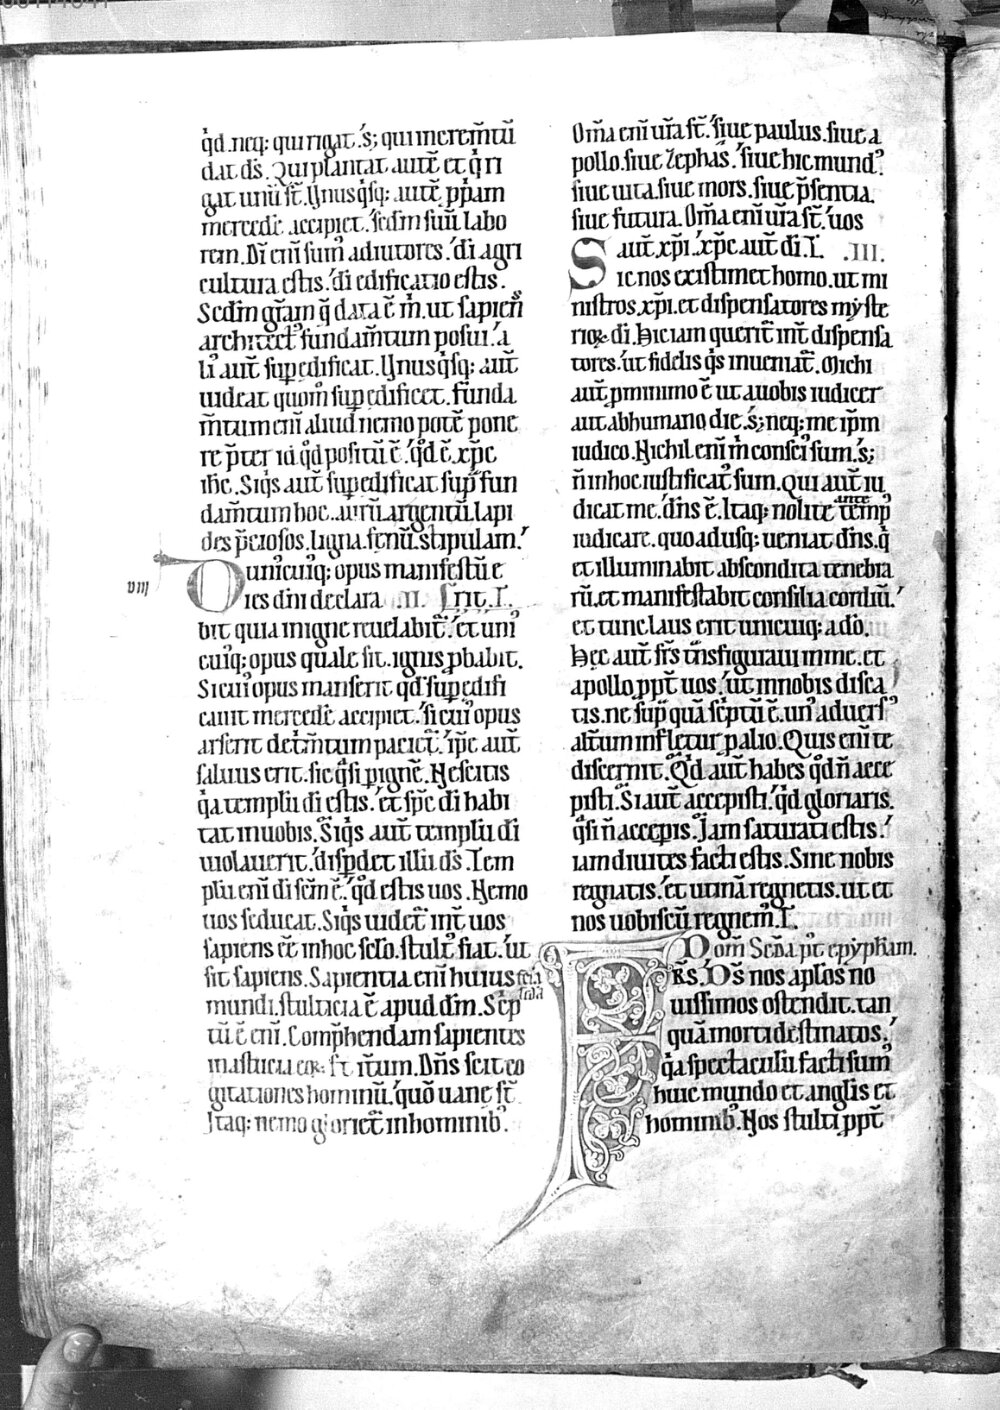 qd̅. neq; qui rigat. s̅; qui increm̅tu̅
dat ds̅. Qui plantat aut̅ et q̇ ri
gat unu̅ st̅. Vnusq̇sq; aut̅. pp̅am
mercede̅ accipiet. sed̅m suu̅ labo
rem. Di̅ eni̅ sumꝰ adiutores. di agri
cultura estis. di edificatio estis.
Sed̅m gr̅am q̅ data e̅ m̅. ut sapien̅
architectꝰ fundam̅tum posui. a
liꝰ aut̅ suꝑedificat. Vnusq̇sq; aut̅
uideat quom̅ suꝑedificet. funda
m̅tum eni̅ aliud nemo pote̅ pone
re p̅ter id qd̅ positu̅ e̅. qd̅ e̅ xp̅c
ih̅c. Siq̇s aut̅ suꝑedificat sup̅ fun
dam̅tum hoc. auru̅. argentu̅. lapi
des p̅ciosos. ligna. fenu̅. stipulam.
uniꝰcuiꝰq; opus manifestu̅ e
Dies dn̅i declara .II. L.
VIII
bit quia in igne reuelabit̅. et uniꝰ
cuiꝰq; opus quale sit. ignis ꝓbabit.
Si cuiꝰ opus manserit qd̅ suꝑedifi
cauit mercede̅ accipiet. si cuiꝰ opus
arserit det̅m̅tum paciet̅. ip̅e aut̅
saluus erit. sic q̇si ꝑ igne̅. Nescitis
q̇a templu̅ di estis. et sp̅c di habi
tat in uobis. Siq̇s aut̅ templu̅ di
uiolauerit. disꝑdet illu̅ ds̅. Tem
plu̅ eni̅ di sc̅m e̅. qd̅ estis uos. Nemo
uos seducat. Siq̇s uidet̅ int̅ uos
sapiens e̅e in hoc sc̅lo. stultꝰ fiat. ut
sit sapiens. Sapientia eni̅ huius
mundi. stulticia e̅ apud dm̅. Sc̅p
tu̅ e̅ eni̅. Comp̅hendam sapientes
in astucia eoꝝ. et it̅um. Dn̅s scit co
gitationes hominu̅. quo̅ uane st̅.
Itaq; nemo gloriet̅ in hominibꝰ.
Om̅ia eni̅ ur̅a st̅. siue paulus. siue a
pollo. siue zephas. siue hic mundꝰ
siue uita. siue mors. siue p̅sentia.
siue futura. Om̅ia eni̅ ur̅a st̅. uos
aut̅. xp̅i. xp̅c aut̅ di. L. .III.
Sic nos existimet homo. ut mi
nistros. xp̅i. et dispensatores myste
rioꝝ di. Hic iam querit̅ int̅ dispensa
tores. ut fidelis q̇s inueniat̅. Michi
aut̅. ꝑ minimo e̅ ut a uobis iudicer
aut ab humano die. s̅; neq; me ip̅m
iudico. Nichil eni̅ m̅ consciꝰ sum. s̅;
n̅ in hoc iustificatꝰ sum. Qui aut̅ iu
dicat me. dn̅s e̅. Itaq; nolite ante te̅mp
iudicare. quo adusq; ueniat dn̅s. q̇
et illuminabit abscondita tenebra
ru̅. et manifestabit consilia cordiu̅.
et tunc laus erit unicuiq; a do̅.
Hec aut̅ frs̅ t̅nsfiguraui in me. et
apollo ppt̅ uos. ut in nobis disca
tis. ne sup̅ qua̅ sc̅ptu̅ e̅. unꝰ aduersꝰ
alt̅um infletur ꝓ alio. Quis eni̅ te
discernit. Qd̅ aut̅ habes qd̅ n̅ acce
pisti. Si aut̅ accepisti. qd̅ gloriaris.
q̇si n̅ acceꝑis. Iam saturati estis.
iam diuites facti estis. Sine nobis
regnatis. et utina̅ regnetis. ut et
nos uobiscu̅ regnemꝰ. L.
Dom̅ Sc̅da p̅t epypham.
FRS̅. Ds̅ nos aplo̅s no
uissimos ostendit. tan
qua̅ morti destinatos.
q̇a spectaculu̅ facti sumꝰ
huic mundo et anglis et
hominibꝰ. Nos stulti ppt̅